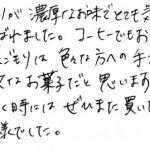 りが濃厚なお味でとても美
ばれました。コーヒーでもお
ごもりは色んな方への手
なお菓子だと思いま
く時にはぜひまた買いた
様でした。